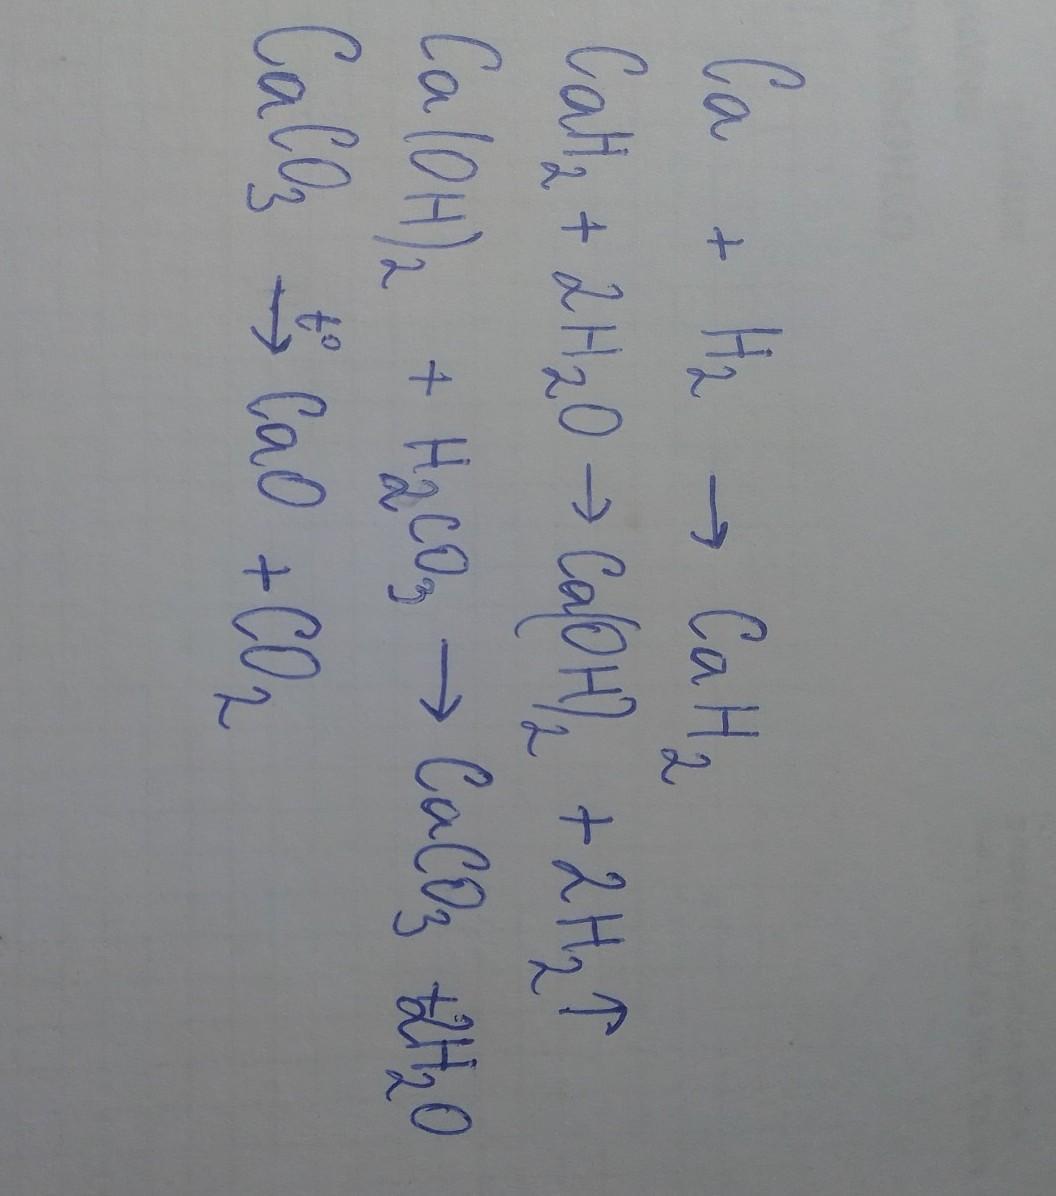 Ca + H₂ → CaH₂
CaH₂ + 2H₂O → Ca(OH)₂ + 2H₂↑
Ca(OH)₂ + H₂CO₃ → CaCO₃ + 2H₂O
CaCO₃ →t° CaO + CO₂